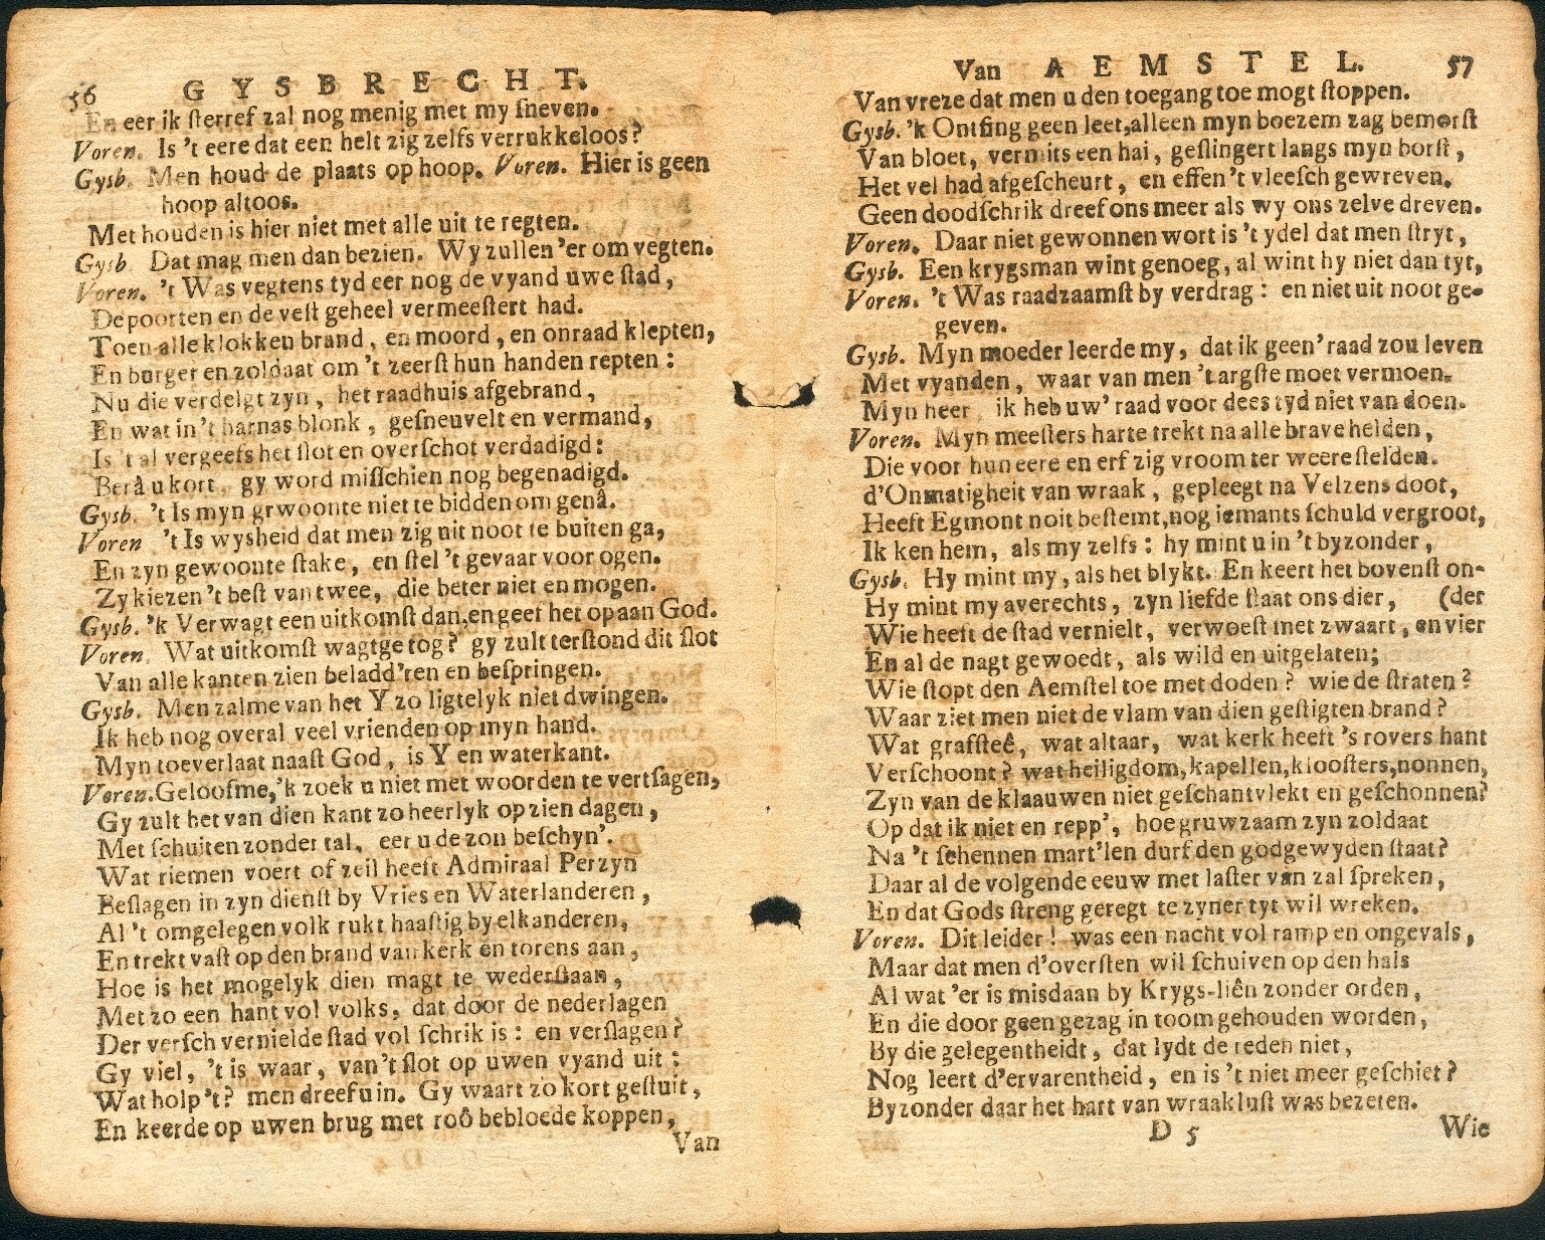 56 GYSBRECHT.
En eer ik ſterref zal nog menig met my ſneven.
Voren. Is 't eere dat een helt zig zelfs verrukkeloos?
Gysb. Men houd de plaats op hoop. Voren. Hier is geen
hoop altoos.
Met houden is hier niet met alle uit te regten.
Gysb. Dat mag men dan bezien. Wy zullen 'er om vegten.
Voren. 't Was vegtens tyd eer nog de vyand uwe ſtad,
De poorten en de veſt geheel vermeeſtert had.
Toen alle klokken brand, en moord, en onraad klepten,
En burger en zoldaat om 't zeerſt hun handen repten:
Nu die verdelgt zyn, het raadhuis afgebrand,
En wat in 't harnas blonk, geſneuvelt en vermand,
Is 't al vergeefs het ſlot en overſchot verdadigd:
Berâ u kort, gy word miſſchien nog begenadigd.
Gysb. 't Is myn grwoonte niet te bidden om genâ.
Voren 't Is wysheid dat men zig uit noot te buiten ga,
En zyn gewoonte ſtake, en ſtel 't gevaar voor ogen.
Zy kiezen 't beſt van twee, die beter niet en mogen.
Gysb. 'k Verwagt een uitkomſt dan, en geef het op aan God.
Voren. Wat uitkomſt wagtge tog? gy zult terſtond dit ſlot
Van alle kanten zien beladd'ren en beſpringen.
Gysb. Men zalme van het Y zo ligtelyk niet dwingen.
Ik heb nog overal veel vrienden op myn hand.
Myn toeverlaat naaſt God, is Y en waterkant.
Voren. Geloofme, 'k zoek u niet met woorden te vertſagen,
Gy zult het van dien kant zo heerlyk op zien dagen,
Met ſchuiten zonder tal, eer u de zon beſchyn'.
Wat riemen voert of zeil heeft Admiraal Perzyn
Beſlagen in zyn dienſt by Vries en Waterlanderen,
Al 't omgelegen volk rukt haaſtig by elkanderen,
En trekt vaſt op den brand van kerk en torens aan,
Hoe is het mogelyk dien magt te wederſtaan,
Met zo een hant vol volks, dat door de nederlagen
Der verſch vernielde ſtad vol ſchrik is: en verſlagen?
Gy viel, 't is waar, van 't ſlot op uwen vyand uit:
Wat holp 't? men dreef u in. Gy waart zo kort geſtuit,
En keerde op uwen brug met roô bebloede koppen,
Van
Van AEMSTEL. 57
Van vreze dat men u den toegang toe mogt ſtoppen.
Gysb. 'k Ontfing geen leet, alleen myn boezem zag bemorſt
Van bloet, vermits een hai, geſlingert langs myn borſt,
Het vel had afgeſcheurt, en effen 't vleeſch gewreven.
Geen doodſchrik dreef ons meer als wy ons zelve dreven.
Voren. Daar niet gewonnen wort is 't ydel dat men ſtryt,
Gysb. Een krygsman wint genoeg, al wint hy niet dan tyt,
Voren. 't Was raadzaamſt by verdrag: en niet uit noot ge-
geven.
Gysb. Myn moeder leerde my, dat ik geen' raad zou leven
Met vyanden, waar van men 't argſte moet vermoen.
Myn heer, ik heb uw' raad voor dees tyd niet van doen.
Voren. Myn meeſters harte trekt na alle brave helden,
Die voor hun eere en erf zig vroom ter weere ſtelden.
d'Onmatigheit van wraak, gepleegt na Velzens doot,
Heeft Egmont noit beſtemt, nog iemants ſchuld vergroot,
Ik ken hem, als my zelfs: hy mint u in 't byzonder,
Gysb. Hy mint my, als het blykt. En keert het bovenſt on-
Hy mint my averechts, zyn liefde ſtaat ons dier, (der
Wie heeft de ſtad vernielt, verwoeſt met zwaart, en vier
En al de nagt gewoedt, als wild en uitgelaten;
Wie ſtopt den Aemſtel toe met doden? wie de ſtraten?
Waar ziet men niet de vlam van dien geſtigten brand?
Wat grafſteê, wat altaar, wat kerk heeft 's rovers hant
Verſchoont? wat heiligdom, kapellen, klooſters, nonnen,
Zyn van de klaauwen niet geſchantvlekt en geſchonnen?
Op dat ik niet en repp', hoe gruwzaam zyn zoldaat
Na 't ſchennen mart'len durf den godgewyden ſtaat?
Daar al de volgende eeuw met laſter van zal ſpreken,
En dat Gods ſtreng geregt te zyner tyt wil wreken.
Voren. Dit leider! was een nacht vol ramp en ongevals,
Maar dat men d'overſten wil ſchuiven op den hals
Al wat 'er is misdaan by Krygs-liên zonder orden,
En die door geen gezag in toom gehouden worden,
By die gelegentheidt, dat lydt de reden niet,
Nog leert d'ervarentheid, en is 't niet meer geſchiet?
Byzonder daar het hart van wraakluſt was bezeten.
D 5 Wie